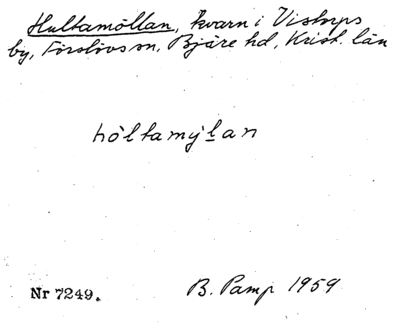 Hultamöllan, kvarn i Vistorps
by, Förslövs sn, Bjäre hd, Krist. län
hòltamỳlan
Nr 7249.
B. Pamp 1959